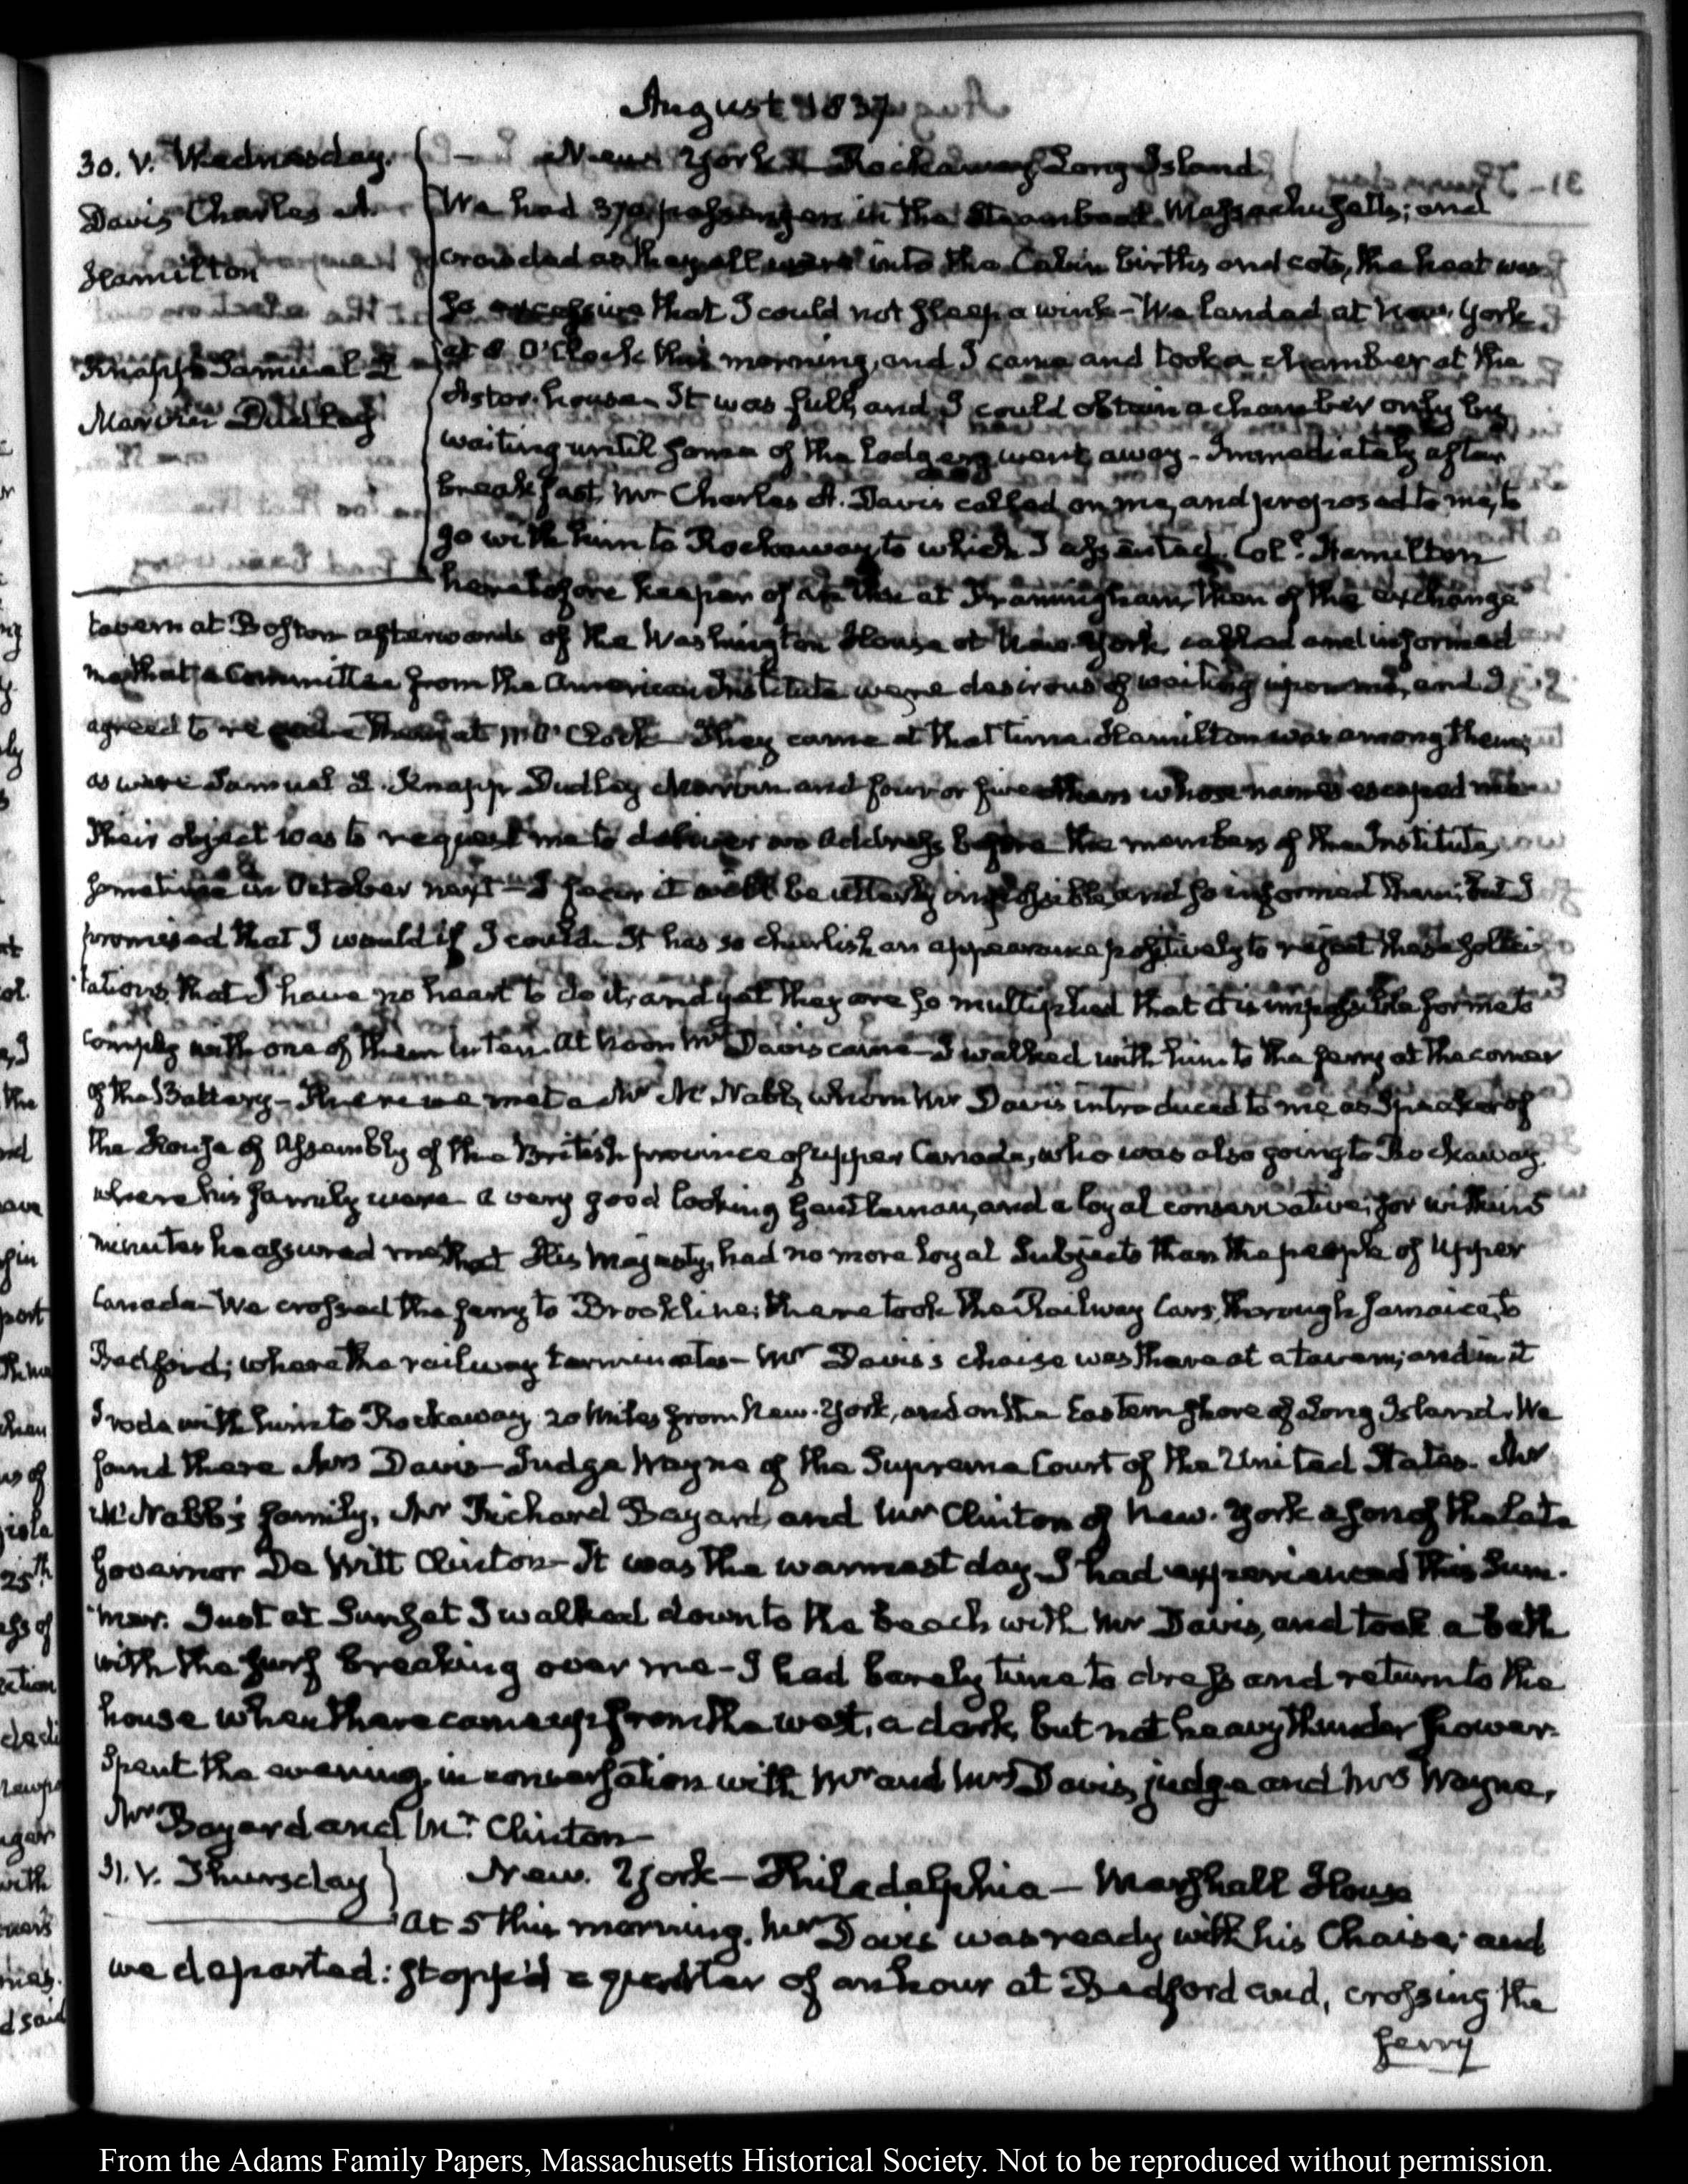 August 1837
30. V. Wednesday.
Davis Charles A.
Hamilton
Knapp Samuel L
Marvin Dudley
New York Rockaway Long Island
We had 370 passengers in the Steamboat Massachusetts; and
crowded as they all were into the Cabin births and cots, the heat was
so excessive that I could not sleep a wink – We landed at New York
at O'Clock this morning, and I came and took a chamber at the
Astor-house – It was full, and I could obtain a chamber only by
waiting until some of the Lodgers went away – Immediately after
breakfast, Mr Charles A. Davis called on me, and proposed to me, to
go with him to Rockaway, to which I assented. Col. Hamilton
heretofore keeper of at Framingham, then of the exchange
tavern at Boston afterwards of the Washington House at New-York, called and informed
me that a Committee from the American Institute were desirous of waiting upon me, and I
agreed to receive them at O'Clock – They came at that time. Hamilton was among them,
as were Samuel L. Knapp Dudley Marvin and four or five others whose names escaped me
Their object was to request me to deliver an Address before the members of the Institute,
sometime in October next – I fear it will be utterly impossible, and so informed them; but I
promised that I would if I could. It has so churlish an appearance positively to reject these sollici-
tations, that I have no heart to do it, and yet they are so multiplied that it is impossible for me to
comply with one of them in ten. At Noon Mr Davis came – I walked with him to the ferry at the corner
of the Battery – There we met a Mr McNabb, whom Mr Davis introduced to me as Speaker of
the House of Assembly of the British province of upper Canada, who was also going to Rockaway
where his family were – a very good looking Gentleman, and a loyal conservative; for within 5
minutes he assured me that His Majesty, had no more loyal Subjects than the people of Upper
Canada – We crossed the ferry to Brookline; there took the Railway Cars, thorough Jamaica, to
Bedford; where the railway terminates – Mr Davis's chaise was there at a tavern; and in it
I rode with him to Rockaway 20 Miles from New-York, and on the Eastern shore of Long Island. We
found there Mrs Davis – Judge Wayne of the Supreme Court of the United States. Mr
McNabb's family, Mr Richard Bayard, and Mr Clinton of New-York a son of the late
Governor De Witt Clinton – It was the warmest day I had experienced this Sum-
mer. Just at Sunset I walked down to the beach with Mr Davis, and took a bath
with the surf breaking over me – I had barely time to dress and return to the
house when there came up from the west, a dark, but not heavy thunder shower.
Spent the evening in conversation with Mr and Mrs Davis, judge and Mrs Wayne,
Mr Bayard and Mr Clinton
31. V. Thursday
New-York – Philadelphia – Marshall House
At 5 this morning, Mr Davis was ready with his Chaise; and
we departed: stopp'd a quarter of an hour at Bedford and, crossing the
ferry
From the Adams Family Papers, Massachusetts Historical Society. Not to be reproduced without permission.